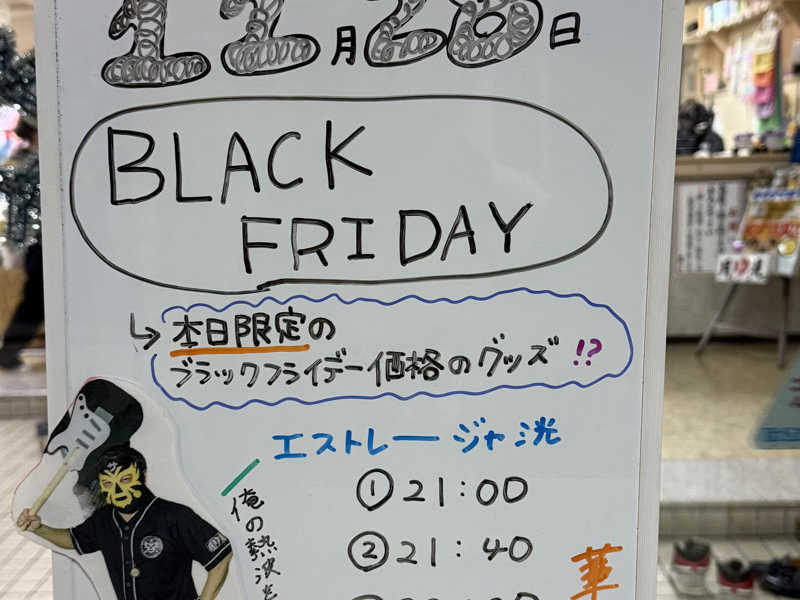 11月28日
BLACK
FRIDAY
本日限定の
ブラックフライデー価格のグッズ!?
エストレージャ洸
①21:00
②21:40
俺の熱波を
華